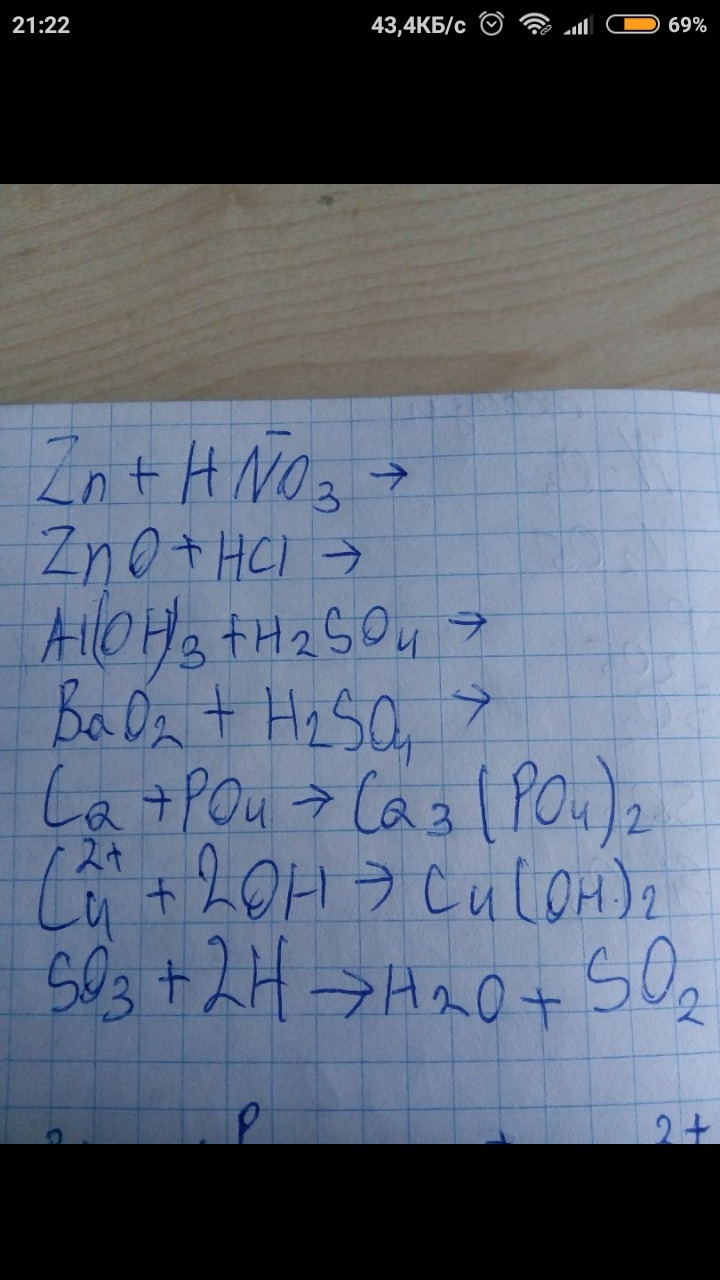 21:22 43,4КБ/с 69%
Zn + HNO3 →
ZnO + HCl →
Al(OH)3 + H2SO4 →
BaO2 + H2SO4 →
Ca + PO4 → Ca3(PO4)2
Cu2+ + 2OH → Cu(OH)2
SO3 + 2H → H2O + SO2
P 2+